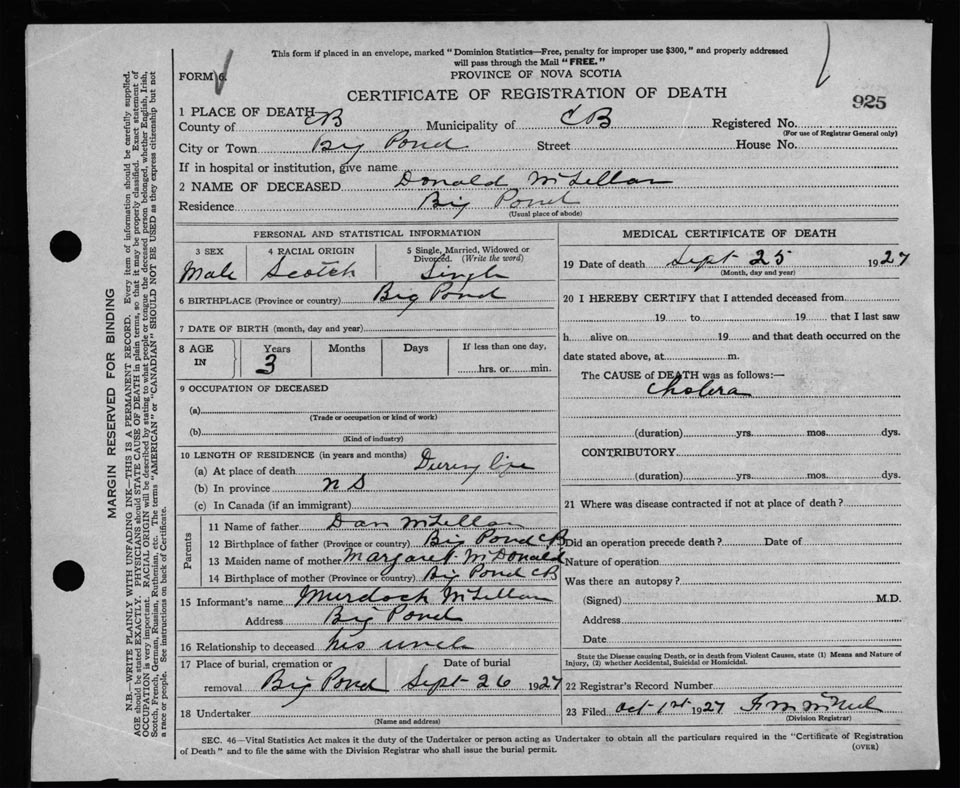 This form if placed in an envelope, marked "Dominion Statistics—Free, penalty for improper use $300," and properly addressed
will pass through the Mail "FREE."
FORM 6.
PROVINCE OF NOVA SCOTIA
CERTIFICATE OF REGISTRATION OF DEATH
925
1 PLACE OF DEATH
County of CB Municipality of CB Registered No.
(For use of Registrar General only)
City or Town Big Pond Street House No.
If in hospital or institution, give name
2 NAME OF DECEASED Donald McLellan
Residence Big Pond
(Usual place of abode)
PERSONAL AND STATISTICAL INFORMATION
3 SEX 4 RACIAL ORIGIN 5 Single, Married, Widowed or
Divorced. (Write the word)
Male Scotch Single
6 BIRTHPLACE (Province or country) Big Pond
7 DATE OF BIRTH (month, day and year)
8 AGE IN Years Months Days If less than one day,
3 hrs. or min.
9 OCCUPATION OF DECEASED
(a)
(Trade or occupation or kind of work)
(b)
(Kind of industry)
10 LENGTH OF RESIDENCE (in years and months)
(a) At place of death During life
(b) In province N S
(c) In Canada (if an immigrant)
Parents
11 Name of father Dan McLellan
12 Birthplace of father (Province or country) Big Pond CB
13 Maiden name of mother Margaret McDonald
14 Birthplace of mother (Province or country) Big Pond CB
15 Informant's name Murdoch McLellan
Address Big Pond
16 Relationship to deceased his uncle
17 Place of burial, cremation or Date of burial
removal Big Pond Sept 26 1927
18 Undertaker
(Name and address)
MEDICAL CERTIFICATE OF DEATH
19 Date of death Sept 25 1927
(Month, day and year)
20 I HEREBY CERTIFY that I attended deceased from
19 to 19 that I last saw
h alive on 19 and that death occurred on the
date stated above, at m.
The CAUSE of DEATH was as follows:—
Cholera
(duration) yrs. mos. dys.
CONTRIBUTORY
(duration) yrs. mos. dys.
21 Where was disease contracted if not at place of death?
Did an operation precede death? Date of
Nature of operation
Was there an autopsy?
(Signed) M.D.
Address
Date
State the Disease causing Death, or in death from Violent Causes, state (1) Means and Nature of
Injury, (2) whether Accidental, Suicidal or Homicidal.
22 Registrar's Record Number
23 Filed Oct 1st 1927
(Division Registrar)
SEC. 46—Vital Statistics Act makes it the duty of the Undertaker or person acting as Undertaker to obtain all the particulars required in the "Certificate of Registration
of Death" and to file the same with the Division Registrar who shall issue the burial permit.
(OVER)
MARGIN RESERVED FOR BINDING
N.B.—WRITE PLAINLY WITH UNFADING INK—THIS IS A PERMANENT RECORD. Every item of information should be carefully supplied.
AGE should be stated EXACTLY. PHYSICIANS should STATE CAUSE OF DEATH in plain terms, so that it may be properly classified. Exact statement of
OCCUPATION is very important. RACIAL ORIGIN will be described by stating to what people or tongue the deceased person belonged, whether English, Irish,
Scotch, French, German, Russian, Ruthenian, etc. The terms "AMERICAN" or "CANADIAN" SHOULD NOT BE USED as they express citizenship but not
a race or people. See instructions on back of Certificate.